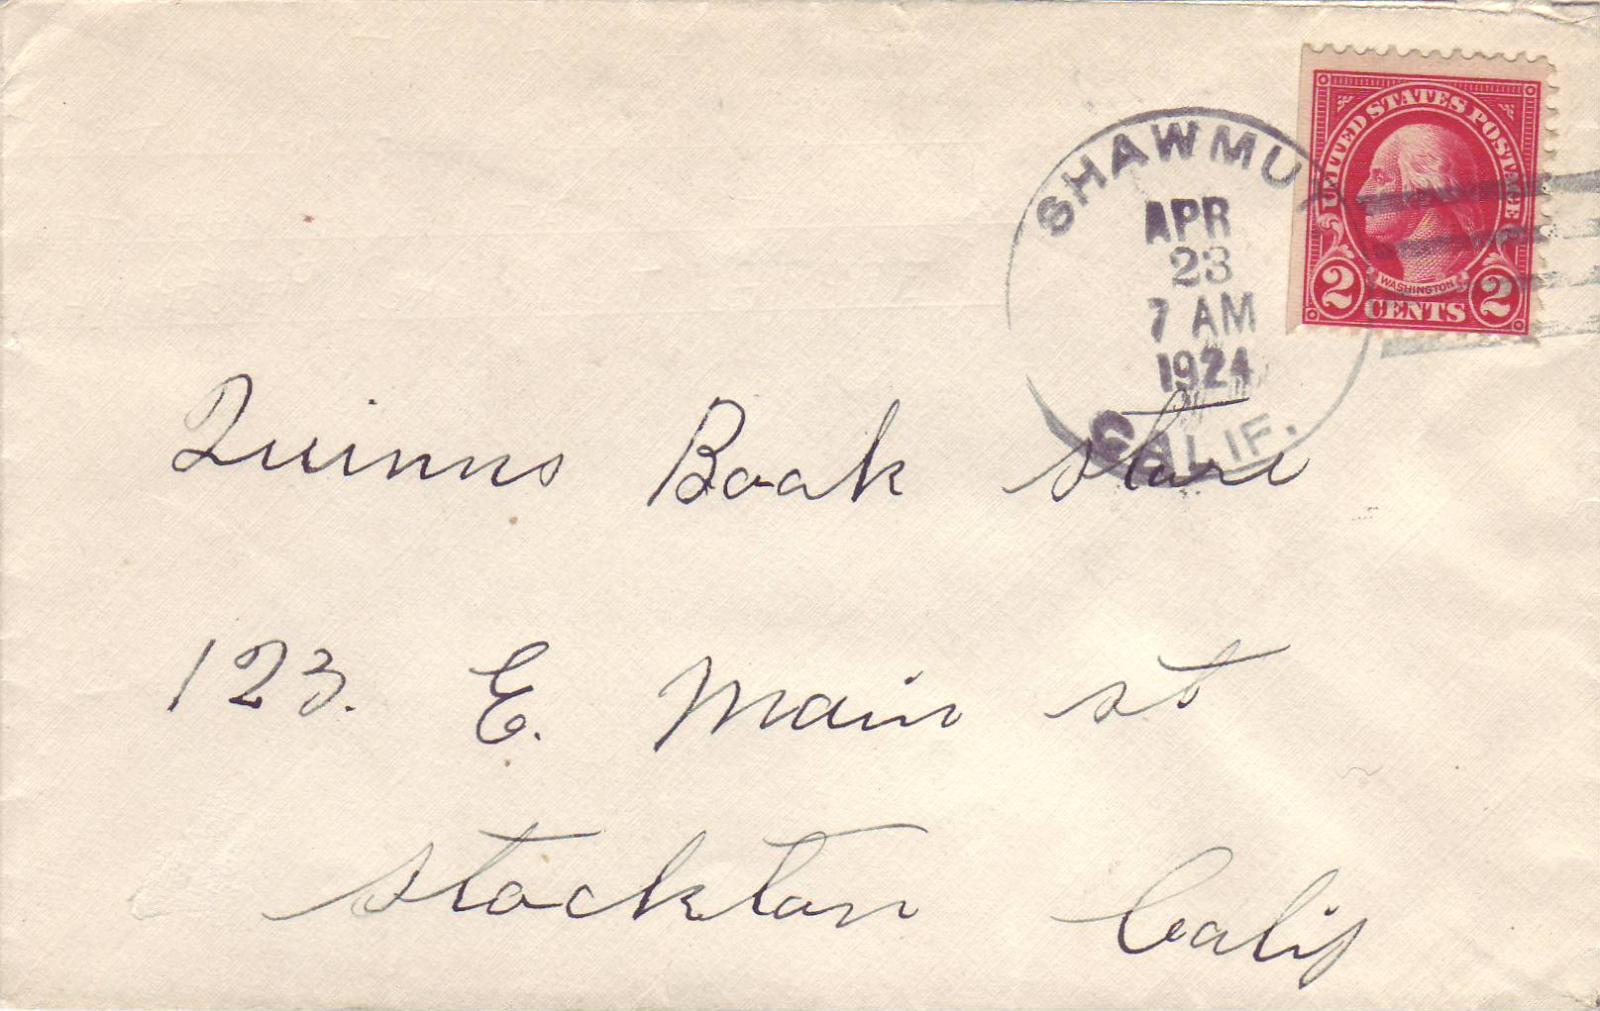 SHAWMUT
APR
23
7 AM
1924
CALIF.
UNITED STATES POSTAGE
WASHINGTON
2 CENTS 2
Quinns Book Store
123. E. Main st
Stockton Calif